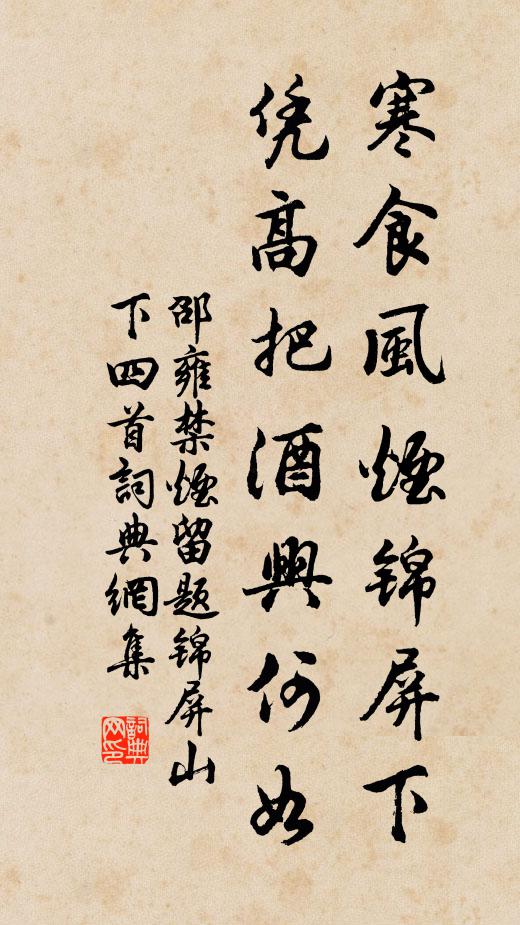 寒食風煙锦屏下
凭高把酒興何如
邵雍禁煙留题锦屏山
下四首詞典網集
詞典网印